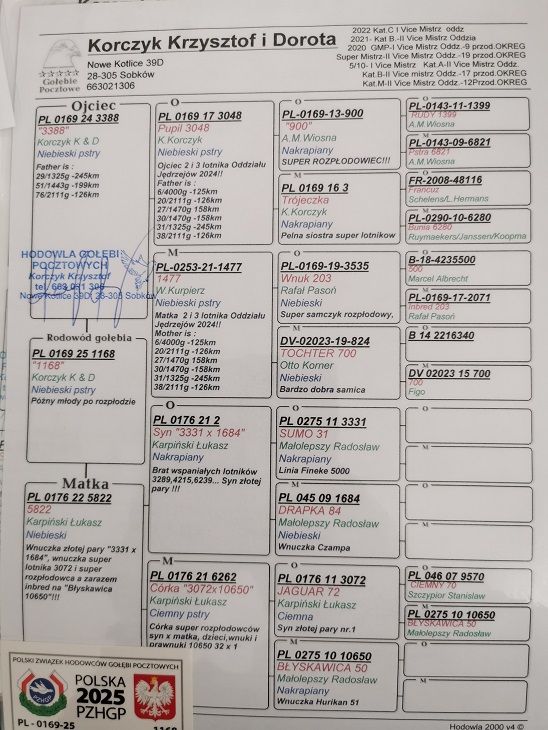 Korczyk Krzysztof i Dorota
Nowe Kotlice 39D
28-305 Sobków
663021306
Gołębie
Pocztowe
2022 Kat.C I Vice Mistrz oddz
2021- Kat B.-II Vice Mistrz Oddzia
2020 GMP-I Vice Mistrz Oddz.-9 przod.OKREG
Super Mistrz-II Vice Mistrz Oddz.-19 przod.OKREG
5/10- I Vice Mistrz Kat.A-II Vice Mistrz Oddz.
Kat.B-II Vice mistrz Oddz.-17 przod.OKREG
Kat.M-II Vice Mistrz Oddz.-12Przod.OKREG
Ojciec
PL 0169 24 3388
"3388"
Korczyk K & D
Niebieski pstry
Father is :
29/1325g -245km
51/1443g -199km
76/2111g -126km
HODOWLA GOŁĘBI
POCZTOWYCH
Korczyk Krzysztof
tel. 663 021 306
Nowe Kotlice 39D, 28-305 Sobków
Rodowód gołebia
PL 0169 25 1168
"1168"
Korczyk K & D
Niebieski pstry
Późny młody po rozpłodzie
Matka
PL 0176 22 5822
5822
Karpiński Łukasz
Niebieski
Wnuczka złotej pary "3331 x
1684", wnuczka super
lotnika 3072 i super
rozpłodowca a zarazem
inbred na "Błyskawica
10650"!!!
O
PL 0169 17 3048
Pupil 3048
K.Korczyk
Niebieski pstry
Ojciec 2 i 3 lotnika Oddziału
Jędrzejów 2024!!
Father is :
6/4000g -125km
20/2111g -126km
27/1470g 158km
30/1470g 158km
31/1325g -245km
38/2111g -126km
M
PL-0253-21-1477
1477
W.Kurpierz
Niebieski pstry
Matka 2 i 3 lotnika Oddziału
Jędrzejów 2024!!
Mother is :
6/4000g -125km
20/2111g -126km
27/1470g 158km
30/1470g -158km
31/1325g -245km
38/2111g -126km
O
PL 0176 21 2
Syn "3331 x 1684"
Karpiński Łukasz
Nakrapiany
Brat wspaniałych lotników
3289,4215,6239... Syn złotej
pary !!!
M
PL 0176 21 6262
Córka "3072x10650"
Karpiński Łukasz
Ciemny pstry
Córka super rozpłodowców
syn x matka, dzieci,wnuki i
prawnuki 10650 32 x 1
O
PL-0169-13-900
"900"
A.M.Wiosna
Nakrapiany
SUPER ROZPŁODOWIEC!!!
M
PL 0169 16 3
Trójeczka
K.Korczyk
Nakrapiany
Pełna siostra super lotnikow
O
PL-0169-19-3535
Wnuk 203
Rafał Pasoń
Niebieski
Super samczyk rozpłodowy,
M
DV-02023-19-824
TOCHTER 700
Otto Korner
Niebieski
Bardzo dobra samica
O
PL 0275 11 3331
SUMO 31
Małolepszy Radosław
Nakrapiany
Linia Fineke 5000
M
PL 045 09 1684
DRAPKA 84
Małolepszy Radosław
Niebieski
Wnuczka Czampa
O
PL 0176 11 3072
JAGUAR 72
Karpiński Łukasz
Ciemna
Syn złotej pary nr.1
M
PL 0275 10 10650
BŁYSKAWICA 50
Małolepszy Radosław
Nakrapiany
Wnuczka Hurikan 51
O
PL-0143-11-1399
RUDY 1399
A.M.Wiosna
M
PL-0143-09-6821
Pstra 6821
A.M.Wiosna
O
FR-2008-48116
Francuz
Schelens/L.Hermans
M
PL-0290-10-6280
Bunia 6280
Ruymaekers/Janssen/Koopma
O
B-18-4235500
500
Marcel Albrecht
M
PL-0169-17-2071
Inbred 203
Rafał Pasoń
O
B 14 2216340
M
DV 02023 15 700
700
Figo
O
M
O
M
O
PL 046 07 9570
CIEMNY 70
Szczypior Stanisław
M
PL 0275 10 10650
BŁYSKAWICA 50
Małolepszy Radosław
O
M
Hodowla 2000 v4 ©
POLSKI ZWIĄZEK HODOWCÓW GOŁĘBI POCZTOWYCH
PZHGP
POLSKA
2025
PZHGP
PL - 0169-25
1168